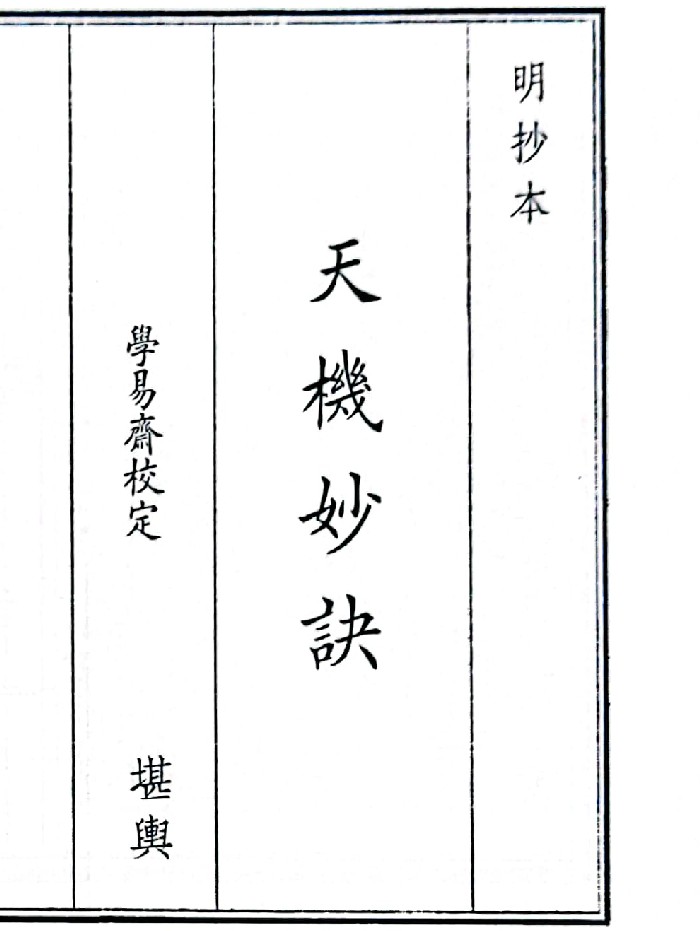 明抄本
天機妙訣
學易齋校定
堪輿